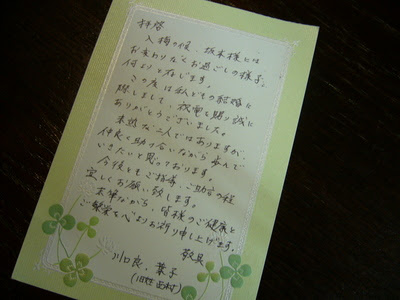 拝啓
入梅の候、坂本様には
お変わりなくお過ごしの様子、
何よりと存じます。
この度は私どもの結婚に
際しまして、祝電を賜り誠に
ありがとうございました。
未熟な二人ではありますが、
仲良く助け合いながら歩んで
いきたいと思っております。
今後ともご指導、ご助言の程
宜しくお願い致します。
末筆ながら、皆様のご健康と
ご繁栄を心よりお祈り申し上げます。
敬具
川口良、葉子
(旧姓 西村)